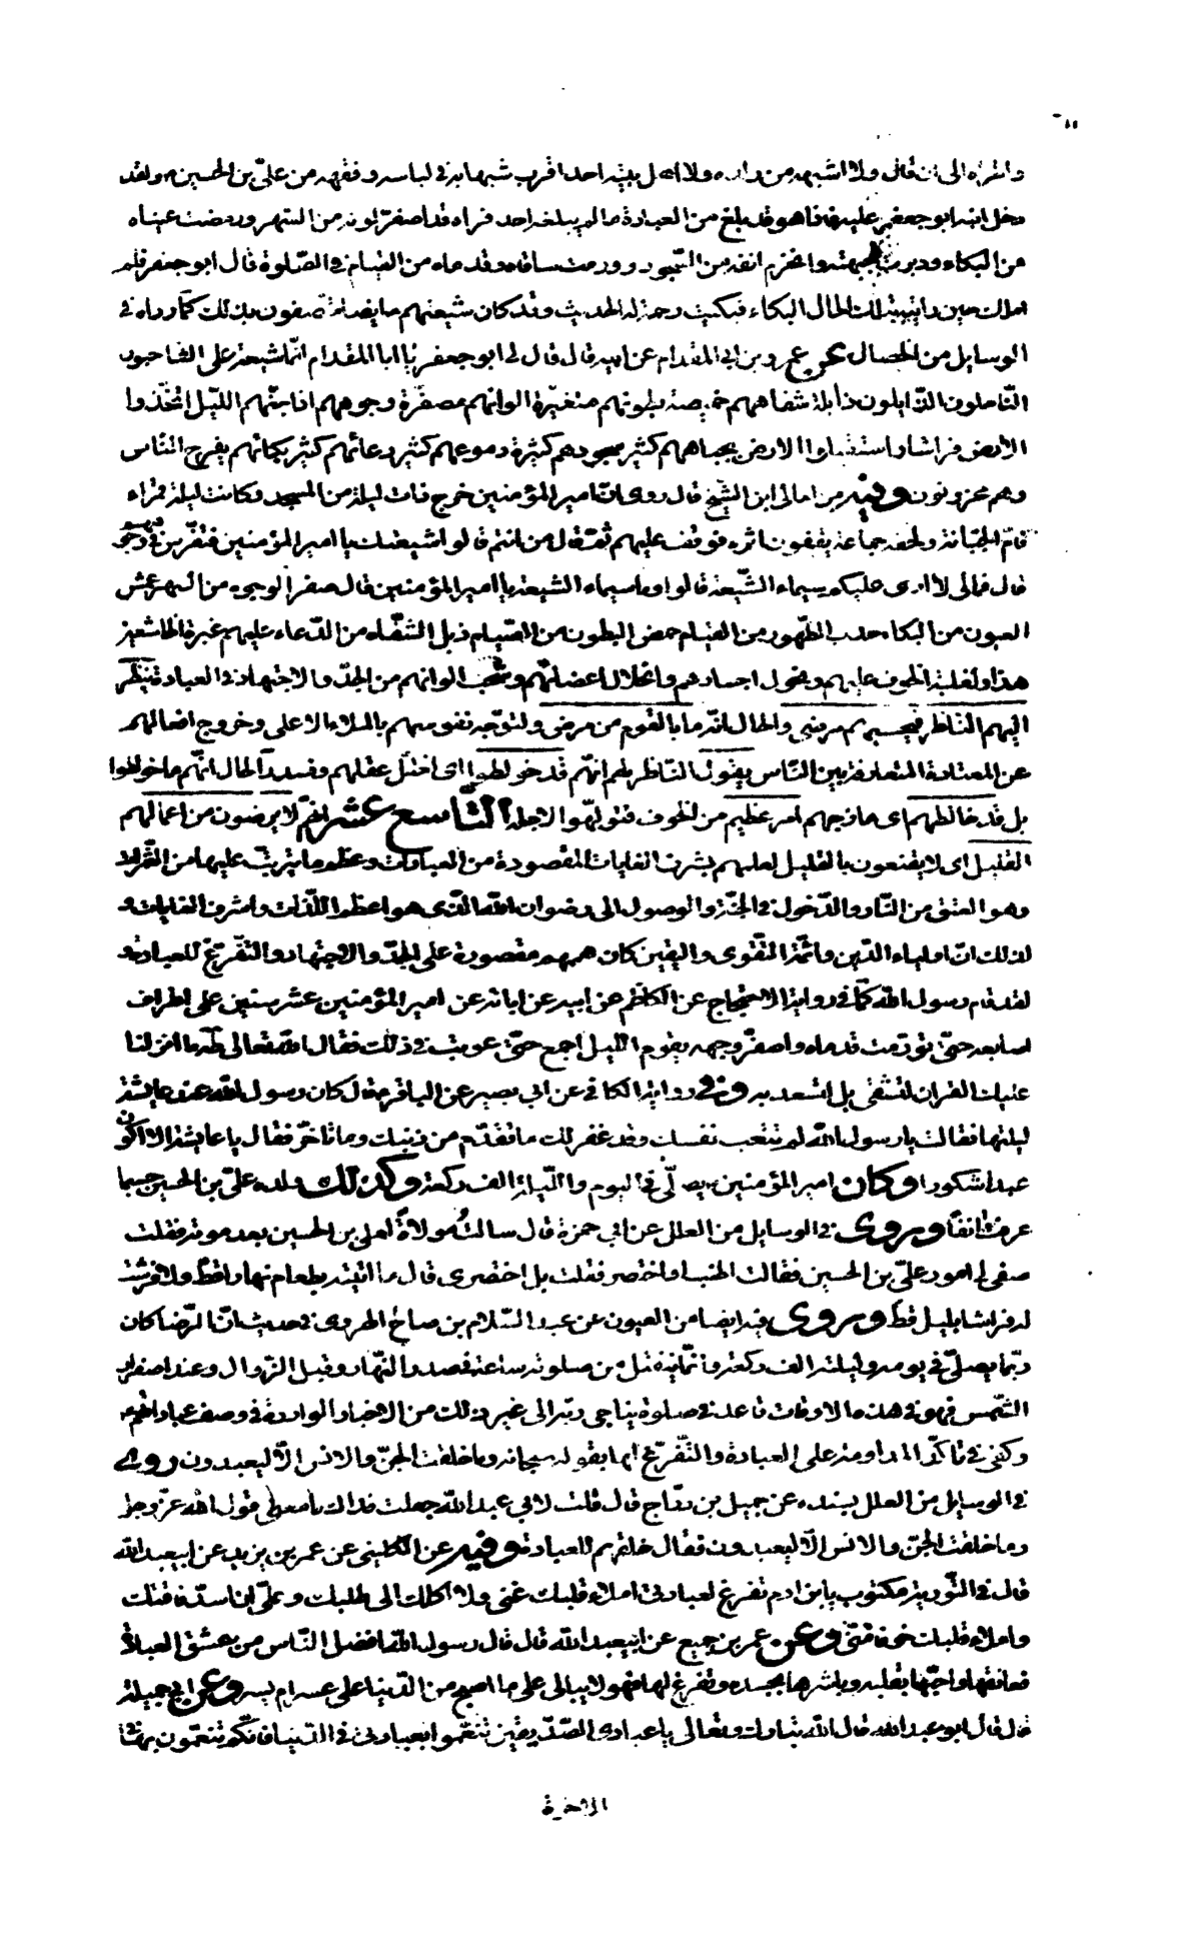 واطراه الى ان قال ولا اشبهه من ولده ولا اهل بيته احد اقرب شبها به في لباسه وفقهه من علي بن الحسين ولقد
دخل ابنه ابو جعفر عليه فاذا هو قد بلغ من العبادة ما لم يبلغه احد فراه قد اصفر لونه من السهر ورمضت عيناه
من البكاء ودبرت جبهته وانخرم انفه من السجود وورمت ساقاه وقدماه من القيام في الصلوة قال ابو جعفر فلم
املك حين رايته بتلك الحال البكاء فبكيت رحمة له الحديث وقد كان شيعتهم ايضا يتصفون بذلك كما رواه في
الوسايل من الخصال عن عمرو بن ابي المقدام عن ابيه قال قال لي ابو جعفر يا ابا المقدام انما شيعة على الشاحبون
الناحلون الذابلون ذابلة شفاههم خميصة بطونهم متغيرة الوانهم مصفرة وجوههم اذا جنهم الليل اتخذوا
الارض فراشا واستقبلوا الارض بجباههم كثير سجودهم كثيرة دموعهم كثير دعائهم كثير بكائهم يفرح الناس
وهم محزونون وفيه من امالى ابن الشيخ قال روى ان امير المؤمنين خرج ذات ليلة من المسجد وكانت ليلة قمراء
فام الجبانة ولحقه جماعة يقفون اثره فوقف عليهم ثم قال من انتم قالوا شيعتك يا امير المؤمنين فتفرس في وجوههم
قال فمالى لا ارى عليكم سيماء الشيعة قالوا وما سيماء الشيعة يا امير المؤمنين قال صفر الوجوه من السهر عمش
العيون من البكاء حدب الظهور من القيام خمص البطون من الصيام ذبل الشفاه من الدعاء عليهم غبرة الخاشعين
هذا ولغلبة الخوف عليهم ونحول اجسادهم وانحلال اعضائهم وشحب الوانهم من الجد والاجتهاد في العبادة ينظر
اليهم الناظر فيحسبهم مرضى والحال انه ما بالقوم من مرض ولتوجه نفوسهم بالملاء الاعلى وخروج افعالهم
عن المعتادة المتعارفة بين الناس يقول الناظر لهم انهم قد خولطوا اى اختل عقلهم وفسد والحال انهم ما خولطوا
بل قد خالطهم اى مازجهم امر عظيم من الخوف فتولهوا لاجله التاسع عشر انهم لا يرضون من اعمالهم
القليل اى لا يقنعون بالقليل لعلمهم بشرف الغايات المقصودة من العبادات وعظم ما يترتب عليها من الثمرات
وهو العتق من النار والدخول في الجنة والوصول الى رضوان الله الذى هو اعظم اللذات واشرف الغايات و
لذلك ان اولياء الدين وائمة التقوى واليقين كان همهم مقصورة على الجد والاجتهاد والتفرغ للعبادة و
لقد قام رسول الله كما في رواية الاحتجاج عن الكاظم عن ابيه عن ابائه عن امير المؤمنين عشر سنين على اطراف
اصابعه حتى تورمت قدماه واصفر وجهه يقوم الليل اجمع حتى عوتب في ذلك فقال الله تعالى طه ما انزلنا
عليك القران لتشقى بل لتسعد به وفي رواية الكافي عن ابي بصير عن الباقر قال كان رسول الله عند عايشة
ليلتها فقالت يا رسول الله لم تتعب نفسك وقد غفر لك ما تقدم من ذنبك وما تاخر فقال يا عايشة الا اكون
عبدا شكورا وكان امير المؤمنين يصلي في اليوم والليلة الف ركعة وكذلك ولده علي بن الحسين حسبما
عرفت انفا وروى في الوسايل من العلل عن ابي حمزة قال سالت مولاة لعلي بن الحسين بعد موته فقلت
صفي لي امور علي بن الحسين فقالت اطنب او اختصر فقلت بل اختصرى قال ما اتيته بطعام نهارا قط ولا فرشت
له فراشا بليل قط وروى فيه ايضا من العيون عن عبد السلام بن صالح الهروى في حديث ان الرضا كان
ربما يصلي في يومه وليلته الف ركعة وانما ينفتل من صلوته ساعة في صدر النهار وقبل الزوال وعند اصفرار
الشمس فهو في هذه الاوقات قاعد في صلوة يناجى ربه الى غير ذلك من الاخبار الواردة في وصف عباداتهم
وكفى في تاكد المداومة على العبادة والتفرغ لها بقوله سبحانه وما خلقت الجن والانس الا ليعبدون روى
في الوسايل من العلل بسنده عن جميل بن دراج قال قلت لابي عبد الله جعلت فداك ما معنى قول الله عز وجل
وما خلقت الجن والانس الا ليعبدون فقال خلقهم للعبادة وفيه عن الكليني عن عمر بن يزيد عن ابيعبد الله
قال في التورية مكتوب يا بن ادم تفرغ لعبادتي املاء قلبك غنى ولا اكلك الى طلبك وعلى ان اسد فاقتك
واملاء قلبك خوفا منى وعن عمر بن جميع عن ابيعبد الله قال قال رسول الله افضل الناس من عشق العبادة
فعانقها واحبها بقلبه وباشرها بجسده وتفرغ لها فهو لا يبالى على ما اصبح من الدنيا على عسر ام يسر وعن ابي جميلة
قال قال ابو عبد الله قال الله تبارك وتعالى يا عبادى الصديقين تنعموا بعبادتى في الدنيا فانكم تتنعمون بها في
الاخرة